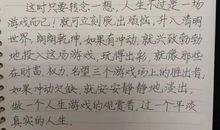 这时只要转念一想,人生不过是一场
游戏而已!就可立刻脱出烦恼,升入清明
世界,朗朗乾坤,如果有冲动,就兴致勃勃
地投入这场游戏,玩得出彩,就像那些
在财富、权力、名望三个游戏场上的胜出者
如果冲动欠缺,就安安静静地,淡出,
做一个人生游戏的观赏者,过一个平淡
真实的人生。